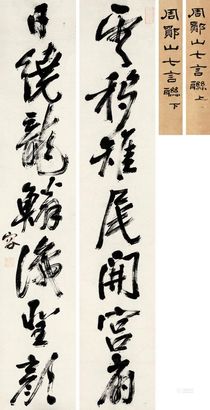 周鄮山七言聯 上
周鄮山七言聯 下
雲移雉尾開宮扇
日繞龍鱗識聖顏
容